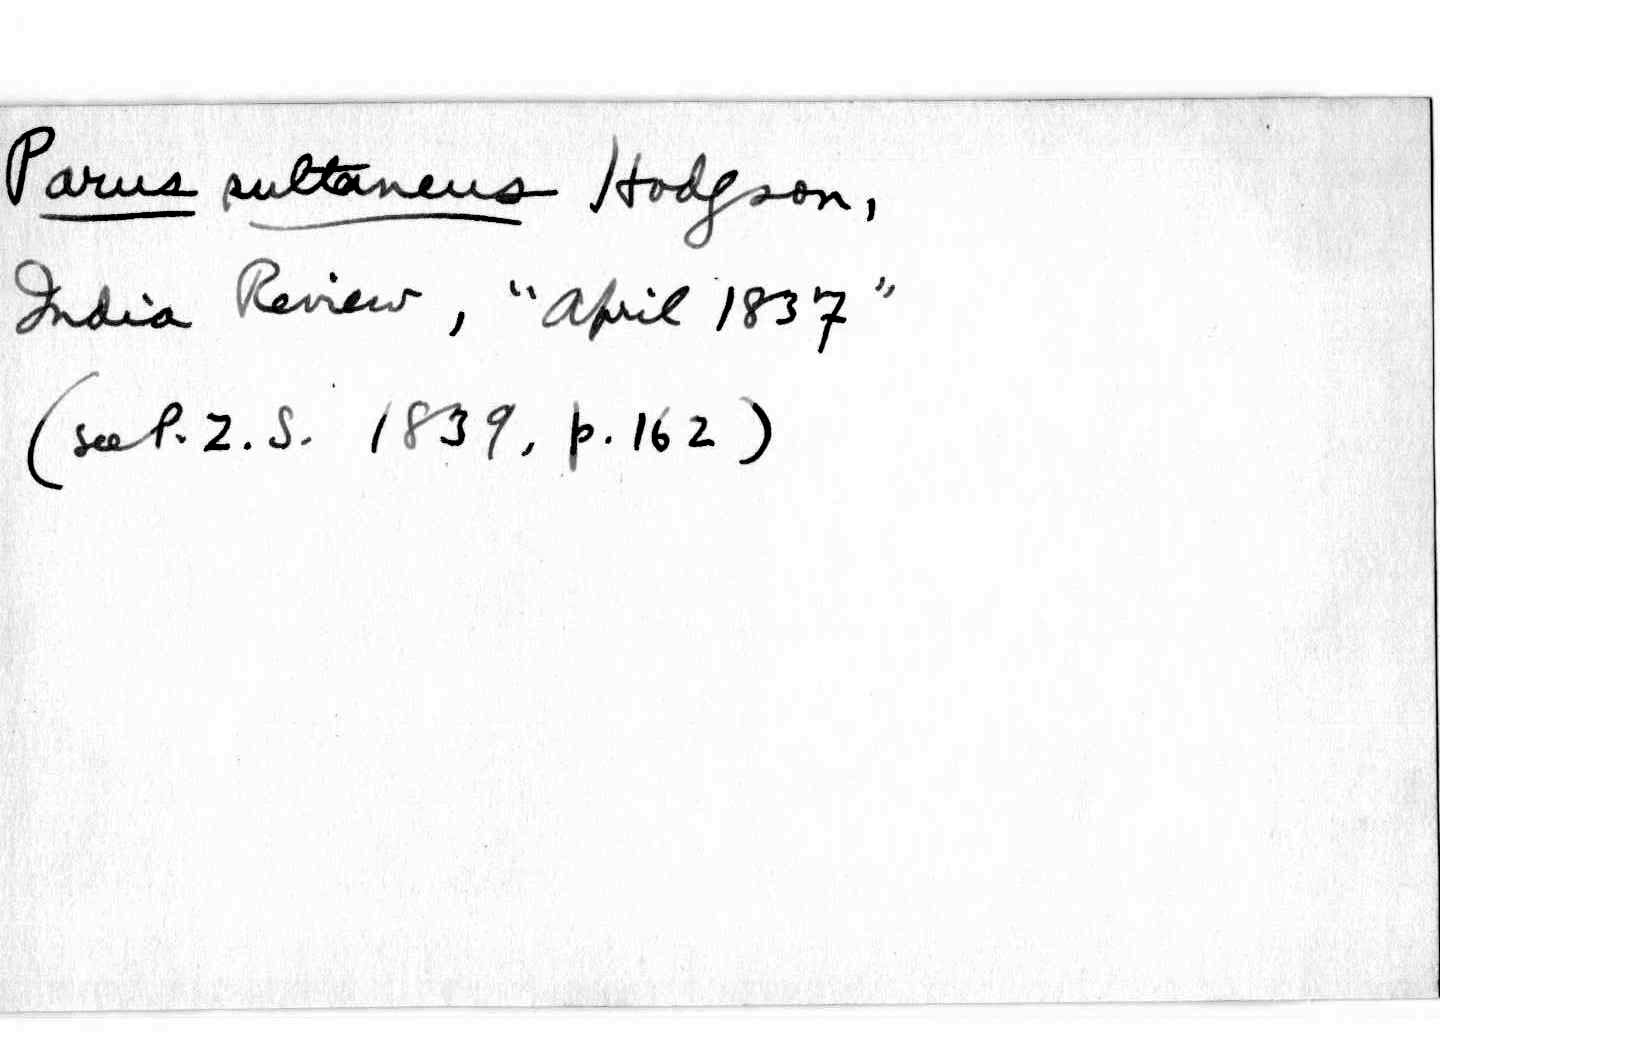 Parus sultaneus Hodgson,
India Review, "April 1837"
(see P.Z.S. 1839, p. 162)